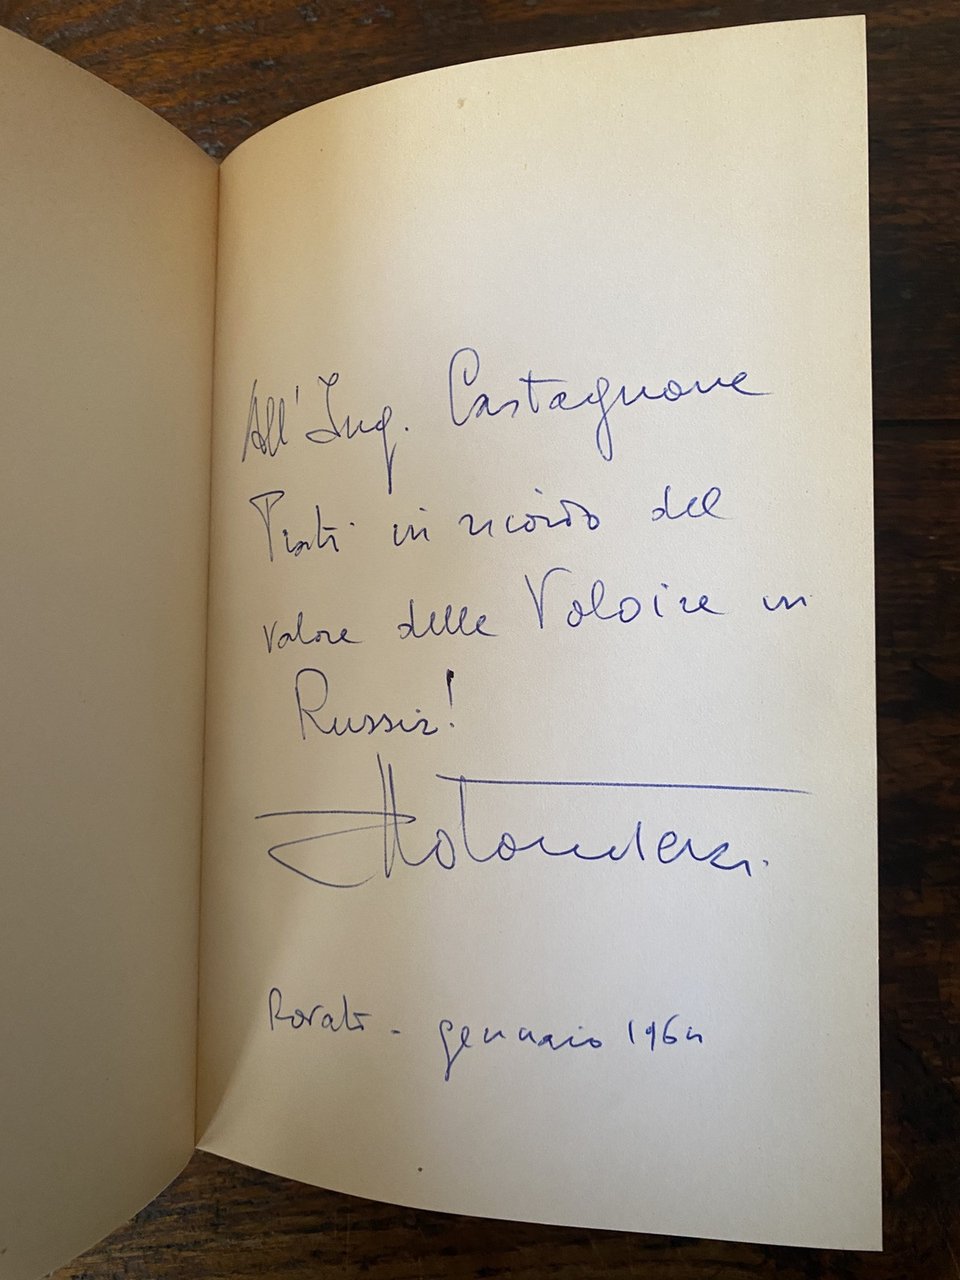 All'Ing. Castagnone
in ricordo del
valore delle Voloire in
Russia!
gennaio 1964